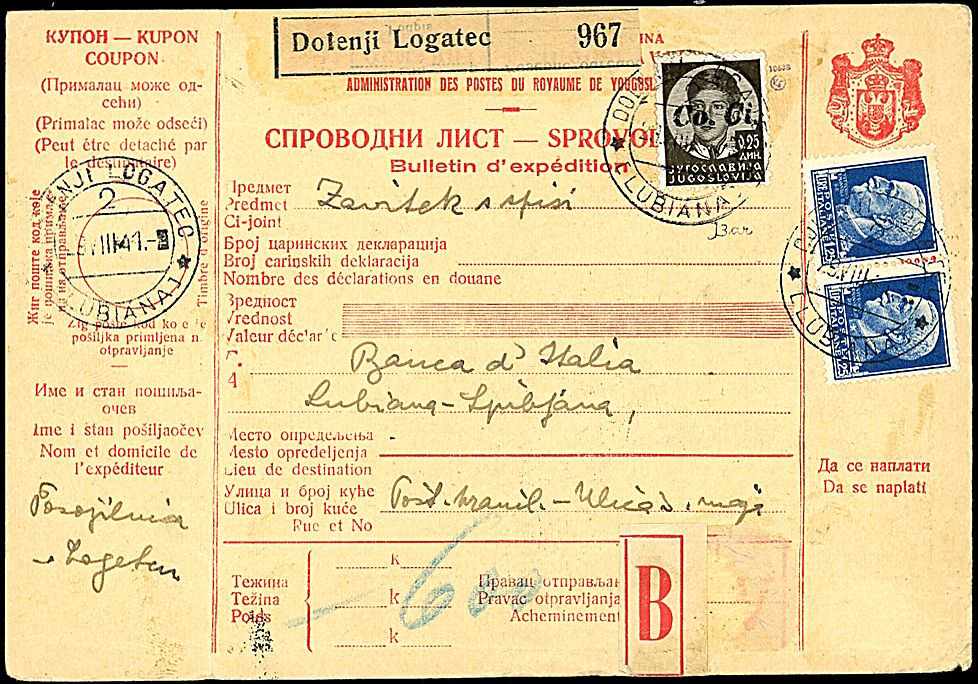 КУПОН — KUPON
COUPON
(Прималац може од-
сећи)
(Primalac može odseći)
(Peut être detaché par
le destinataire)
Dolenji Logatec 967
ADMINISTRATION DES POSTES DU ROYAUME DE YOUGOSL
СПРОВОДНИ ЛИСТ — SPROVOD
Bulletin d'expédition
Co. Ci.
0.25
ДИН.
ЈУГОСЛАВИЈА
JUGOSLAVIJA
DOLENJI LOGATEC
(LUBIANA)
Предмет
Predmet Zavitek s spisi
Ci-joint
Bar
Број царинских декларација
Broj carinskih deklaracija
Nombre des déclarations en douane
Вредност
Vrednost
Valeur déclar
Banca d'Italia
4
Lubiana - Ljubljana,
Место опредељења
Mesto opredeljenja
Lieu de destination
Улица и број куће
Ulica i broj kuće
Rue et No
DOLENJI LOGATEC
2
VIII 41.-8
(LUBIANA)
Timbre d'origine
Žig pošte kod ko e je
pošiljka primljena n
otpravljanje
Име и стан пошиља-
очев
Ime i stan pošiljaočev
Nom et domicile de
l'expéditeur
Posojilnica
Logatec
Тежина
Težina
Poids
k
k
k
600
Правац отправљањ
Pravac otpravljanja
Acheminement
B
VIII
(LUBIANA)
Да се наплати
Da se naplati